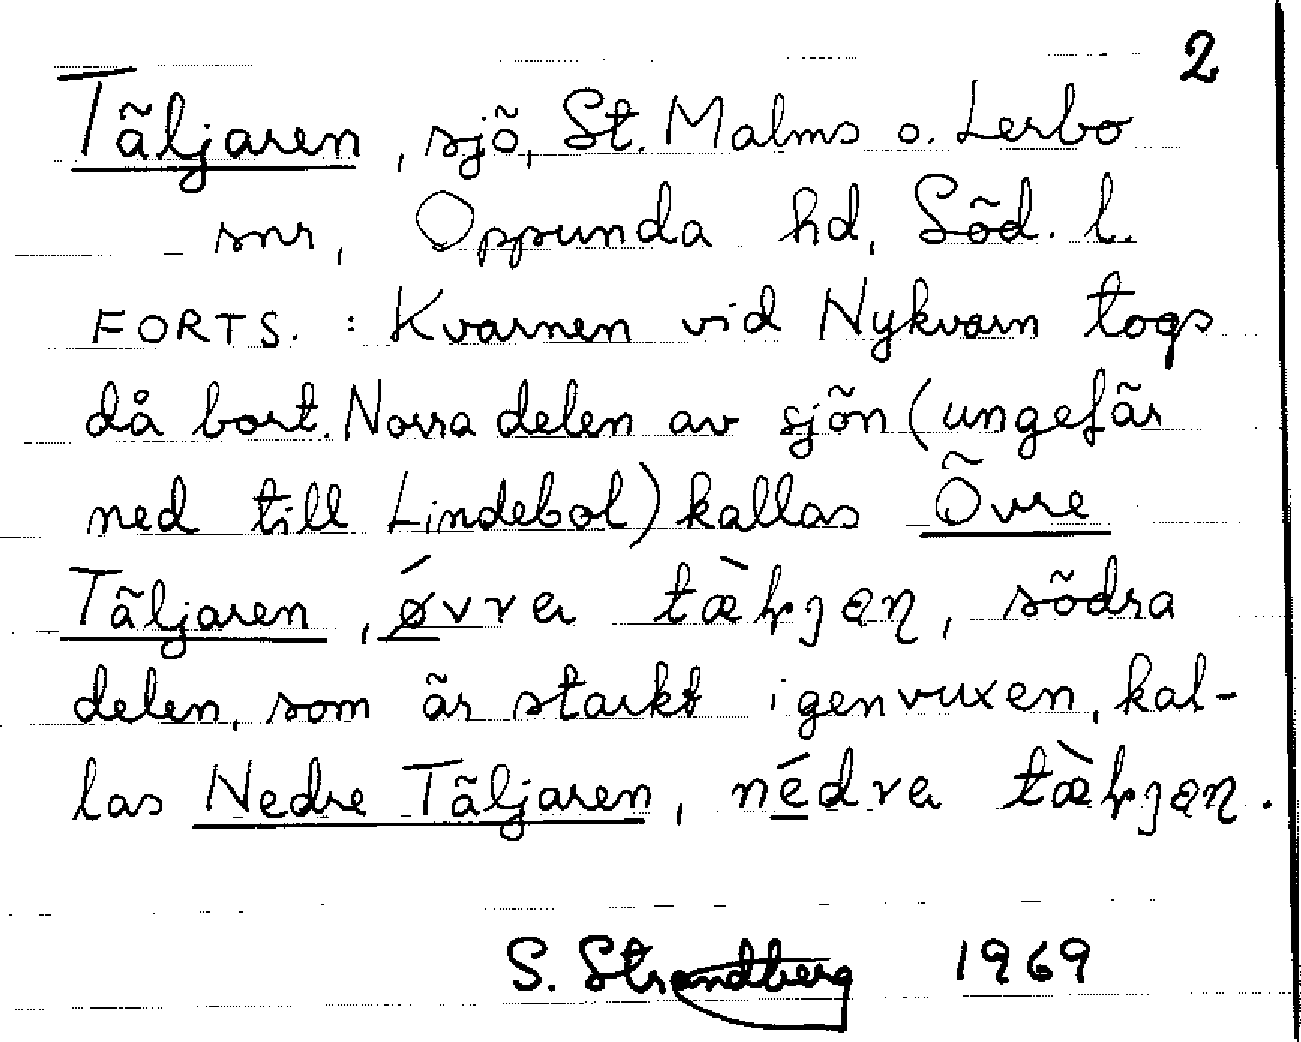 2
Täljaren, sjö, St. Malms o. Lerbo
snr, Oppunda hd, Söd. l.
FORTS. : Kvarnen vid Nykvarn togs
då bort. Norra delen av sjön (ungefär
ned till Lindebol) kallas Övre
Täljaren, ǿvra södra
delen, som är starkt igenvuxen, kal-
las Nedre Täljaren, nédra
S. Strandberg 1969